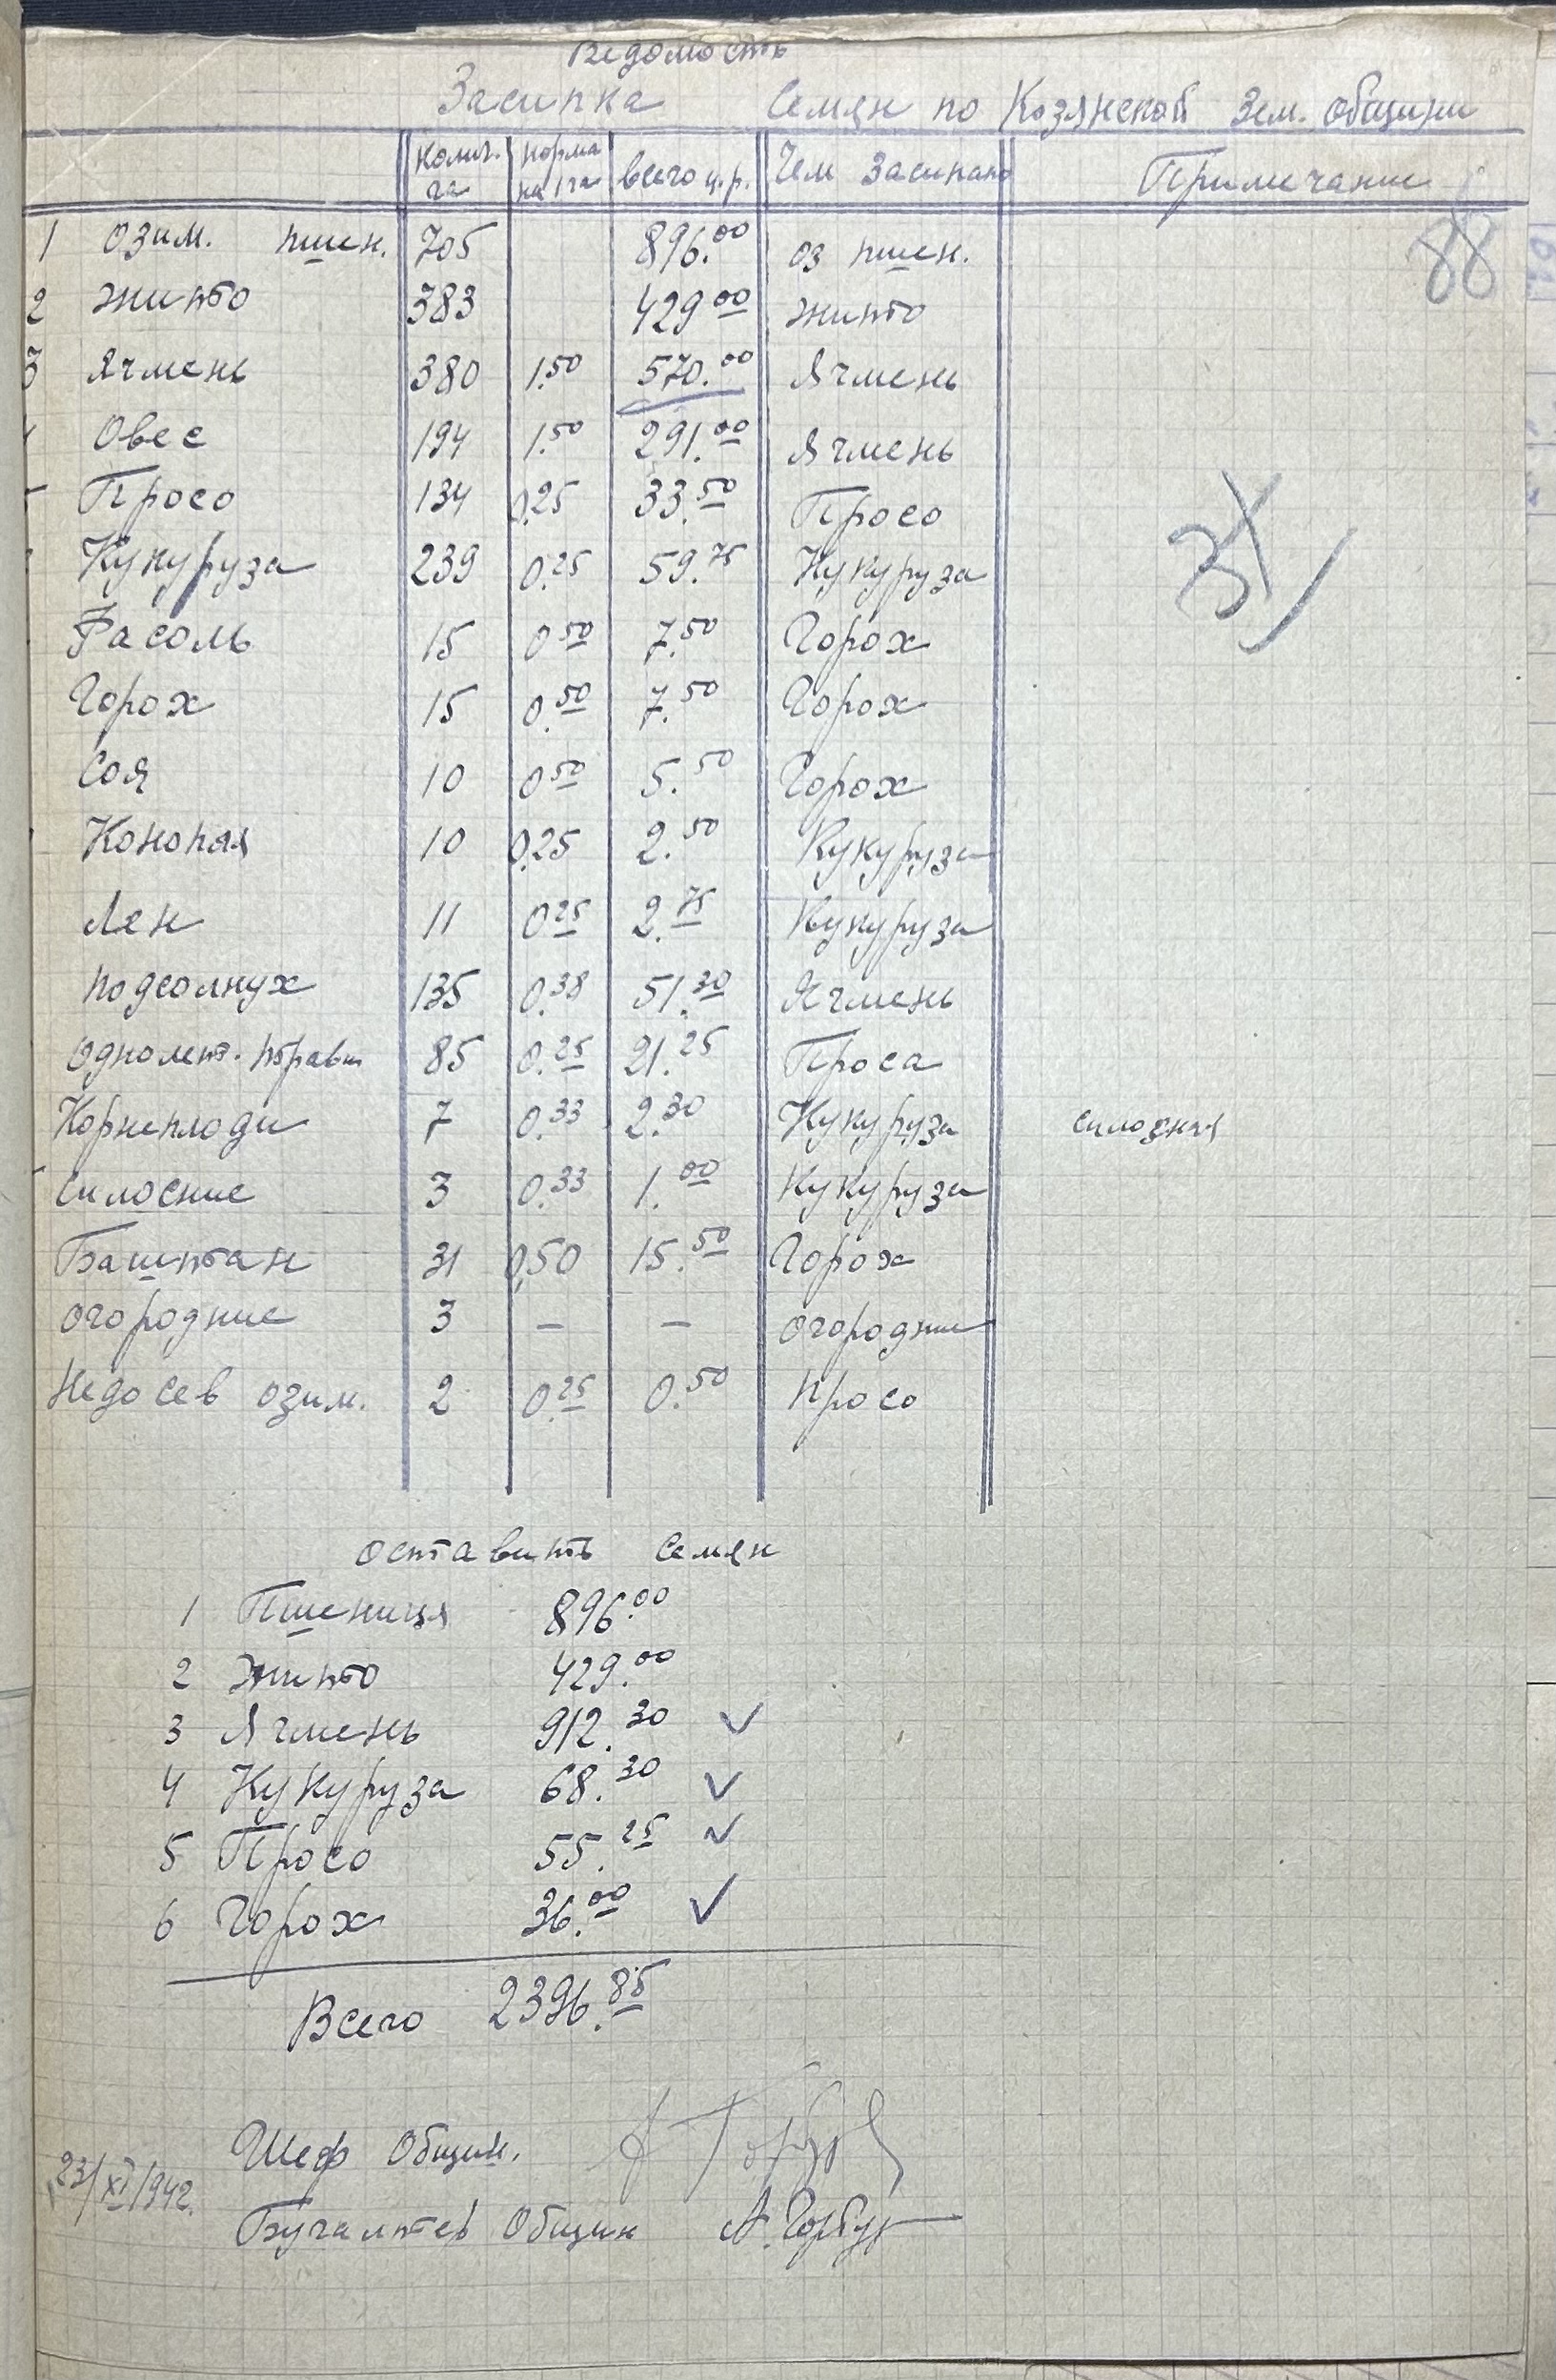 Ведомость
Засипка Семян по Козянской Зем. Общини
колич. га норма на 1 га всего ц.р. Чем Засипано Примечание
88
1 Озим. пшен. 705 896.00 оз пшен.
2 жито 383 429.00 жито
3 Ячмень 380 1.50 570.00 Ячмень
Овес 194 1.50 291.00 Ячмень
Просо 134 0,25 33.50 Просо
Кукуруза 239 0.25 59.75 Кукуруза
Фасоль 15 0.50 7.50 Горох
Горох 15 0.50 7.50 Горох
Соя 10 0.50 5.50 Горох
Конопля 10 0,25 2.50 Кукуруза
Лен 11 0.25 2.75 Кукуруза
Подсолнух 135 0.38 51.30 Ячмень
Однолет. травы 85 0.25 21.25 Проса
Корнеплоди 7 0.33 2.30 Кукуруза силозная
Силосние 3 0.33 1.00 Кукуруза
Баштан 31 0,50 15.50 Горох
огородние 3 — — огородние
Недосев озим. 2 0.25 0.50 просо
оставить семян
1 Пшениця 896.00
2 жито 429.00
3 Ячмень 912.30 ✓
4 Кукуруза 68.30 ✓
5 Просо 55.25 ✓
6 Горох 36.00 ✓
Всего 2396.85
Шеф Общин.
23/XI/1942.
Бугалтер Общин